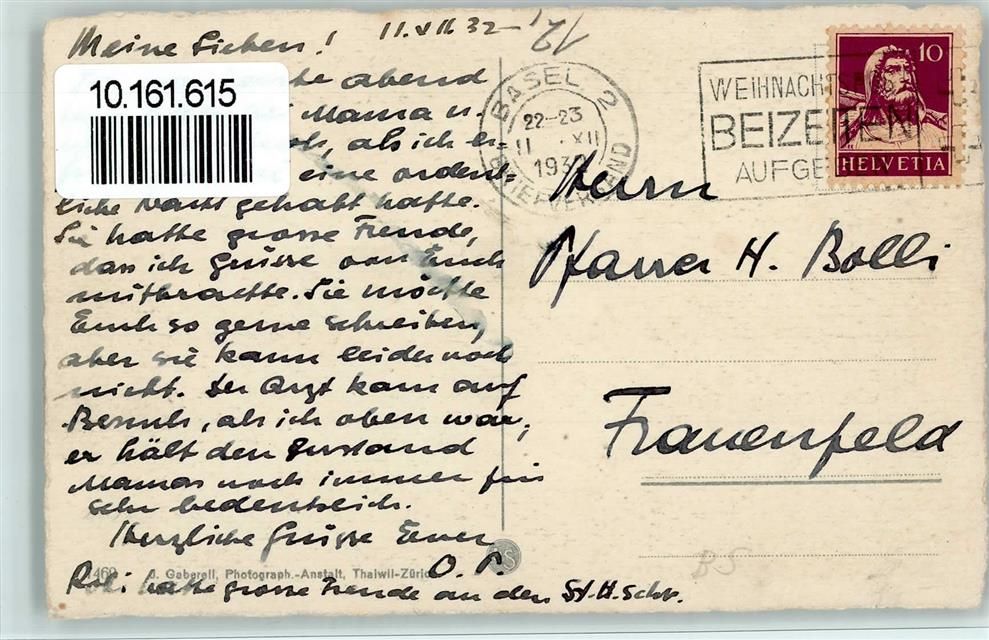 Meine Lieben!
11.XII 32
10.161.615
abend
Mama u.
, als ich
eine ordent-
liche Nacht gehabt hatte.
Sie hatte grosse Freude,
dass ich Grüsse von Euch
mitbrachte. Sie möchte
Euch so gerne schreiben,
aber sie kann leider noch
nicht. Der Arzt kam auf
Besuch, als ich oben war,
er hält den Zustand
Mamas noch immer für
sehr bedenklich.
Herzliche Grüsse Euer
O. P.
1469 J. Gaberell, Photograph.-Anstalt, Thalwil-Zürich
hatte grosse Freude an den St.H.Schr.
BASEL 2
22-23
11. XII
1932
BRIEFVERSAND
WEIHNACHTS
BEIZEITEN
AUFGE
10
HELVETIA
Herrn
Pfarrer H. Bolli
Frauenfeld
BS